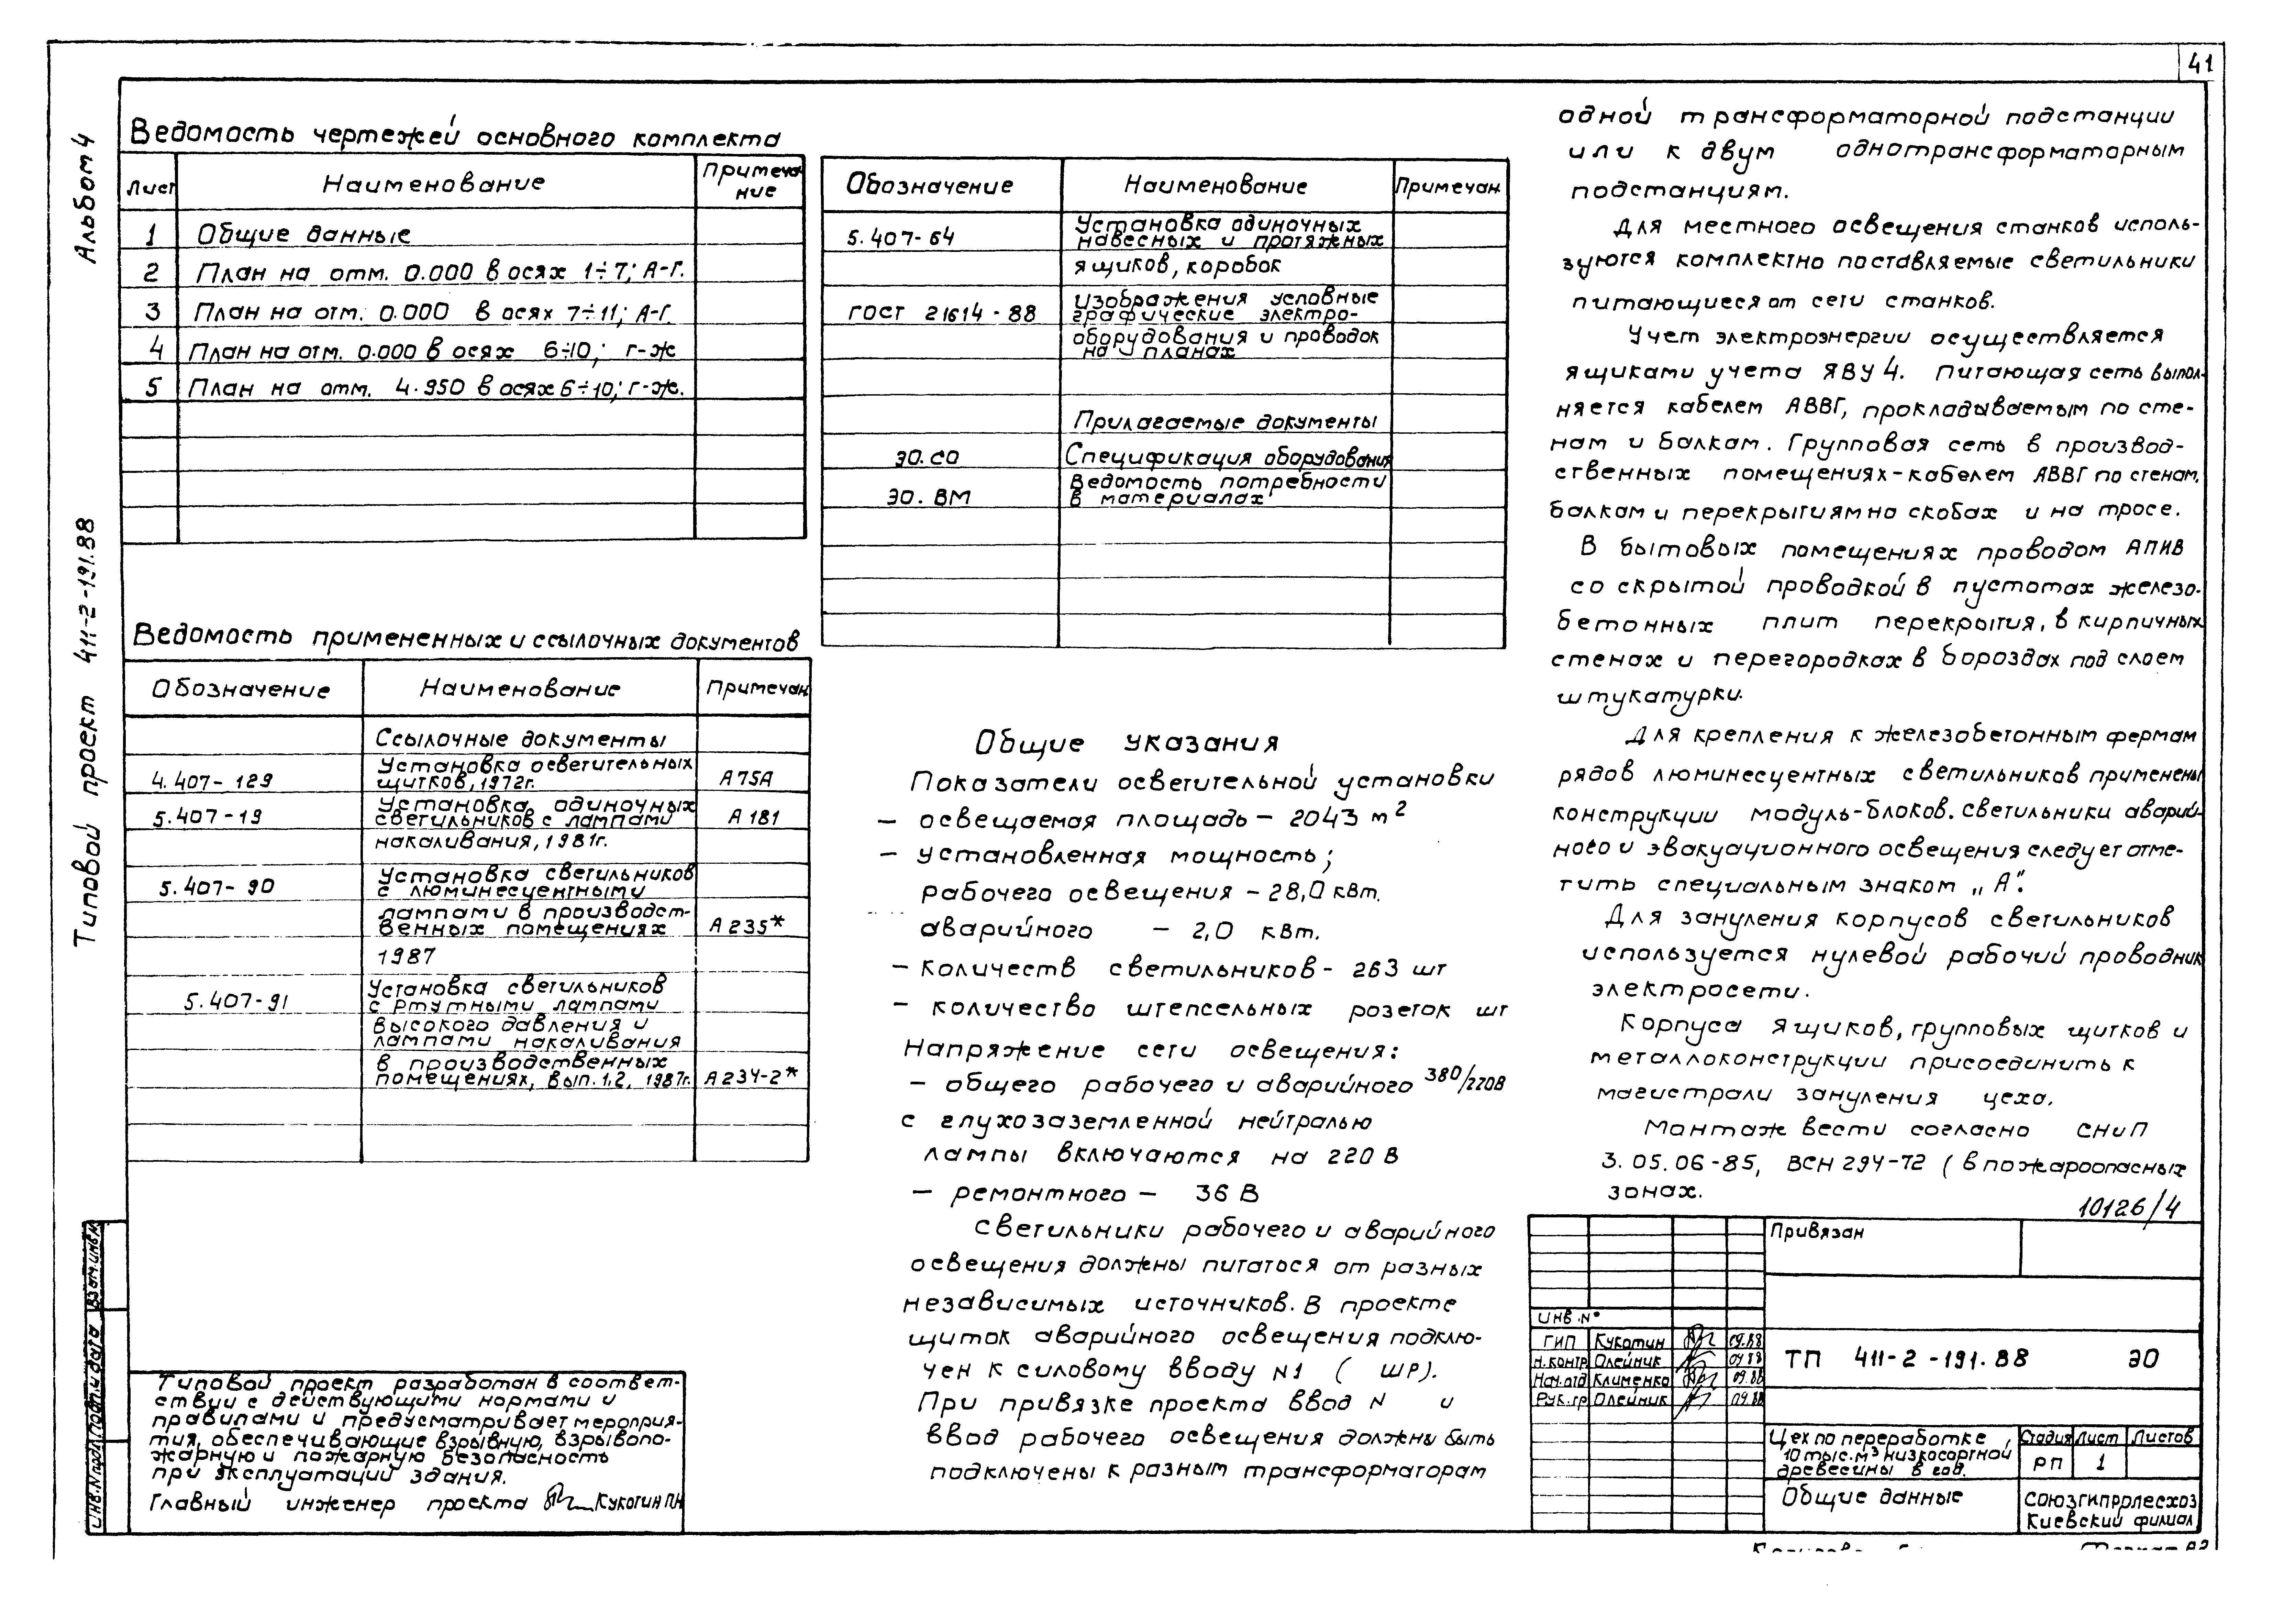 41
Альбом 4
Типовой проект 411-2-191.88
Ведомость чертежей основного комплекта
Лист
Наименование
Примеча-
ние
1 Общие данные
2 План на отм. 0.000 в осях 1÷7; А-Г.
3 План на отм. 0.000 в осях 7÷11; А-Г.
4 План на отм. 0.000 в осях 6÷10; Г-Ж
5 План на отм. 4.950 в осях 6÷10; Г-Ж.
Ведомость примененных и ссылочных документов
Обозначение Наименование Примечан.
Ссылочные документы
Установка осветительных
4.407-129 щитков, 1972г. А75А
Установка одиночных
5.407-19 светильников с лампами А181
накаливания, 1981г.
Установка светильников
5.407-90 с люминесцентными
лампами в производст-
венных помещениях А235*
1987
Установка светильников
5.407-91 с ртутными лампами
высокого давления и
лампами накаливания
в производственных
помещениях, вып.1,2, 1987г. А234-2*
Типовой проект разработан в соответ-
ствии с действующими нормами и
правилами и предусматривает мероприя-
тия, обеспечивающие взрывную, взрывопо-
жарную и пожарную безопасность
при эксплуатации здания.
Главный инженер проекта Кукотин П.Н
Инв.N подл. Подп. и дата Взам.инв.N
Обозначение Наименование Примечан.
Установка одиночных
5.407-64 навесных и протяжных
ящиков, коробок
Изображения условные
ГОСТ 21614-88 графические электро-
оборудования и проводок
на планах
Прилагаемые документы
ЭО.СО Спецификация оборудования
Ведомость потребности
ЭО.ВМ в материалах
Общие указания
Показатели осветительной установки
- освещаемая площадь - 2043 м2
- установленная мощность;
рабочего освещения - 28,0 кВт.
аварийного - 2,0 кВт.
- Количеств светильников - 263 шт
- количество штепсельных розеток шт
Напряжение сети освещения:
- общего рабочего и аварийного 380/220В
с глухозаземленной нейтралью
лампы включаются на 220 В
- ремонтного - 36 В
Светильники рабочего и аварийного
освещения должны питаться от разных
независимых источников. В проекте
щиток аварийного освещения подклю-
чен к силовому вводу N1 ( ШР).
При привязке проекта ввод N и
ввод рабочего освещения должны быть
подключены к разным трансформаторам
одной трансформаторной подстанции
или к двум однотрансформаторным
подстанциям.
Для местного освещения станков исполь-
зуются комплектно поставляемые светильники
питающиеся от сети станков.
Учет электроэнергии осуществляется
ящиками учета ЯВУ 4. Питающая сеть выпол-
няется кабелем АВВГ, прокладываемым по сте-
нам и балкам. Групповая сеть в производ-
ственных помещениях - кабелем АВВГ по стенам,
балкам и перекрытиям на скобах и на тросе.
В бытовых помещениях проводом АПИВ
со скрытой проводкой в пустотах железо-
бетонных плит перекрытия, в кирпичных
стенах и перегородках в бороздах под слоем
штукатурки.
Для крепления к железобетонным фермам
рядов люминесцентных светильников применены
конструкции модуль-блоков. Светильники аварий-
ного и эвакуационного освещения следует отме-
тить специальным знаком „А".
Для зануления корпусов светильников
используется нулевой рабочий проводник
электросети.
Корпуса ящиков, групповых щитков и
металлоконструкции присоединить к
магистрали зануления цеха.
Монтаж вести согласно СНиП
3.05.06-85, ВСН 294-72 (в пожароопасных
зонах.
10126/4
Привязан
Инв.N°
ГИП Кукотин 09.88
Н.контр Олейник 09.88
Нач.отд Клименко 09.88
Рук.гр Олейник 09.88
ТП 411-2-191.88 ЭО
Цех по переработке
10 тыс.м3 низкосортной
древесины в год.
Стадия Лист Листов
РП 1
Общие данные
СОЮЗГИПРОЛЕСХОЗ
Киевский филиал